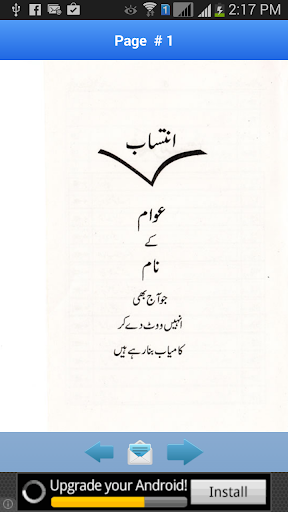 2:17 PM
Page # 1
انتساب
عوام
کے
نام
جو آج بھی
انہیں ووٹ دے کر
کامیاب بنا رہے ہیں
Upgrade your Android!
Install